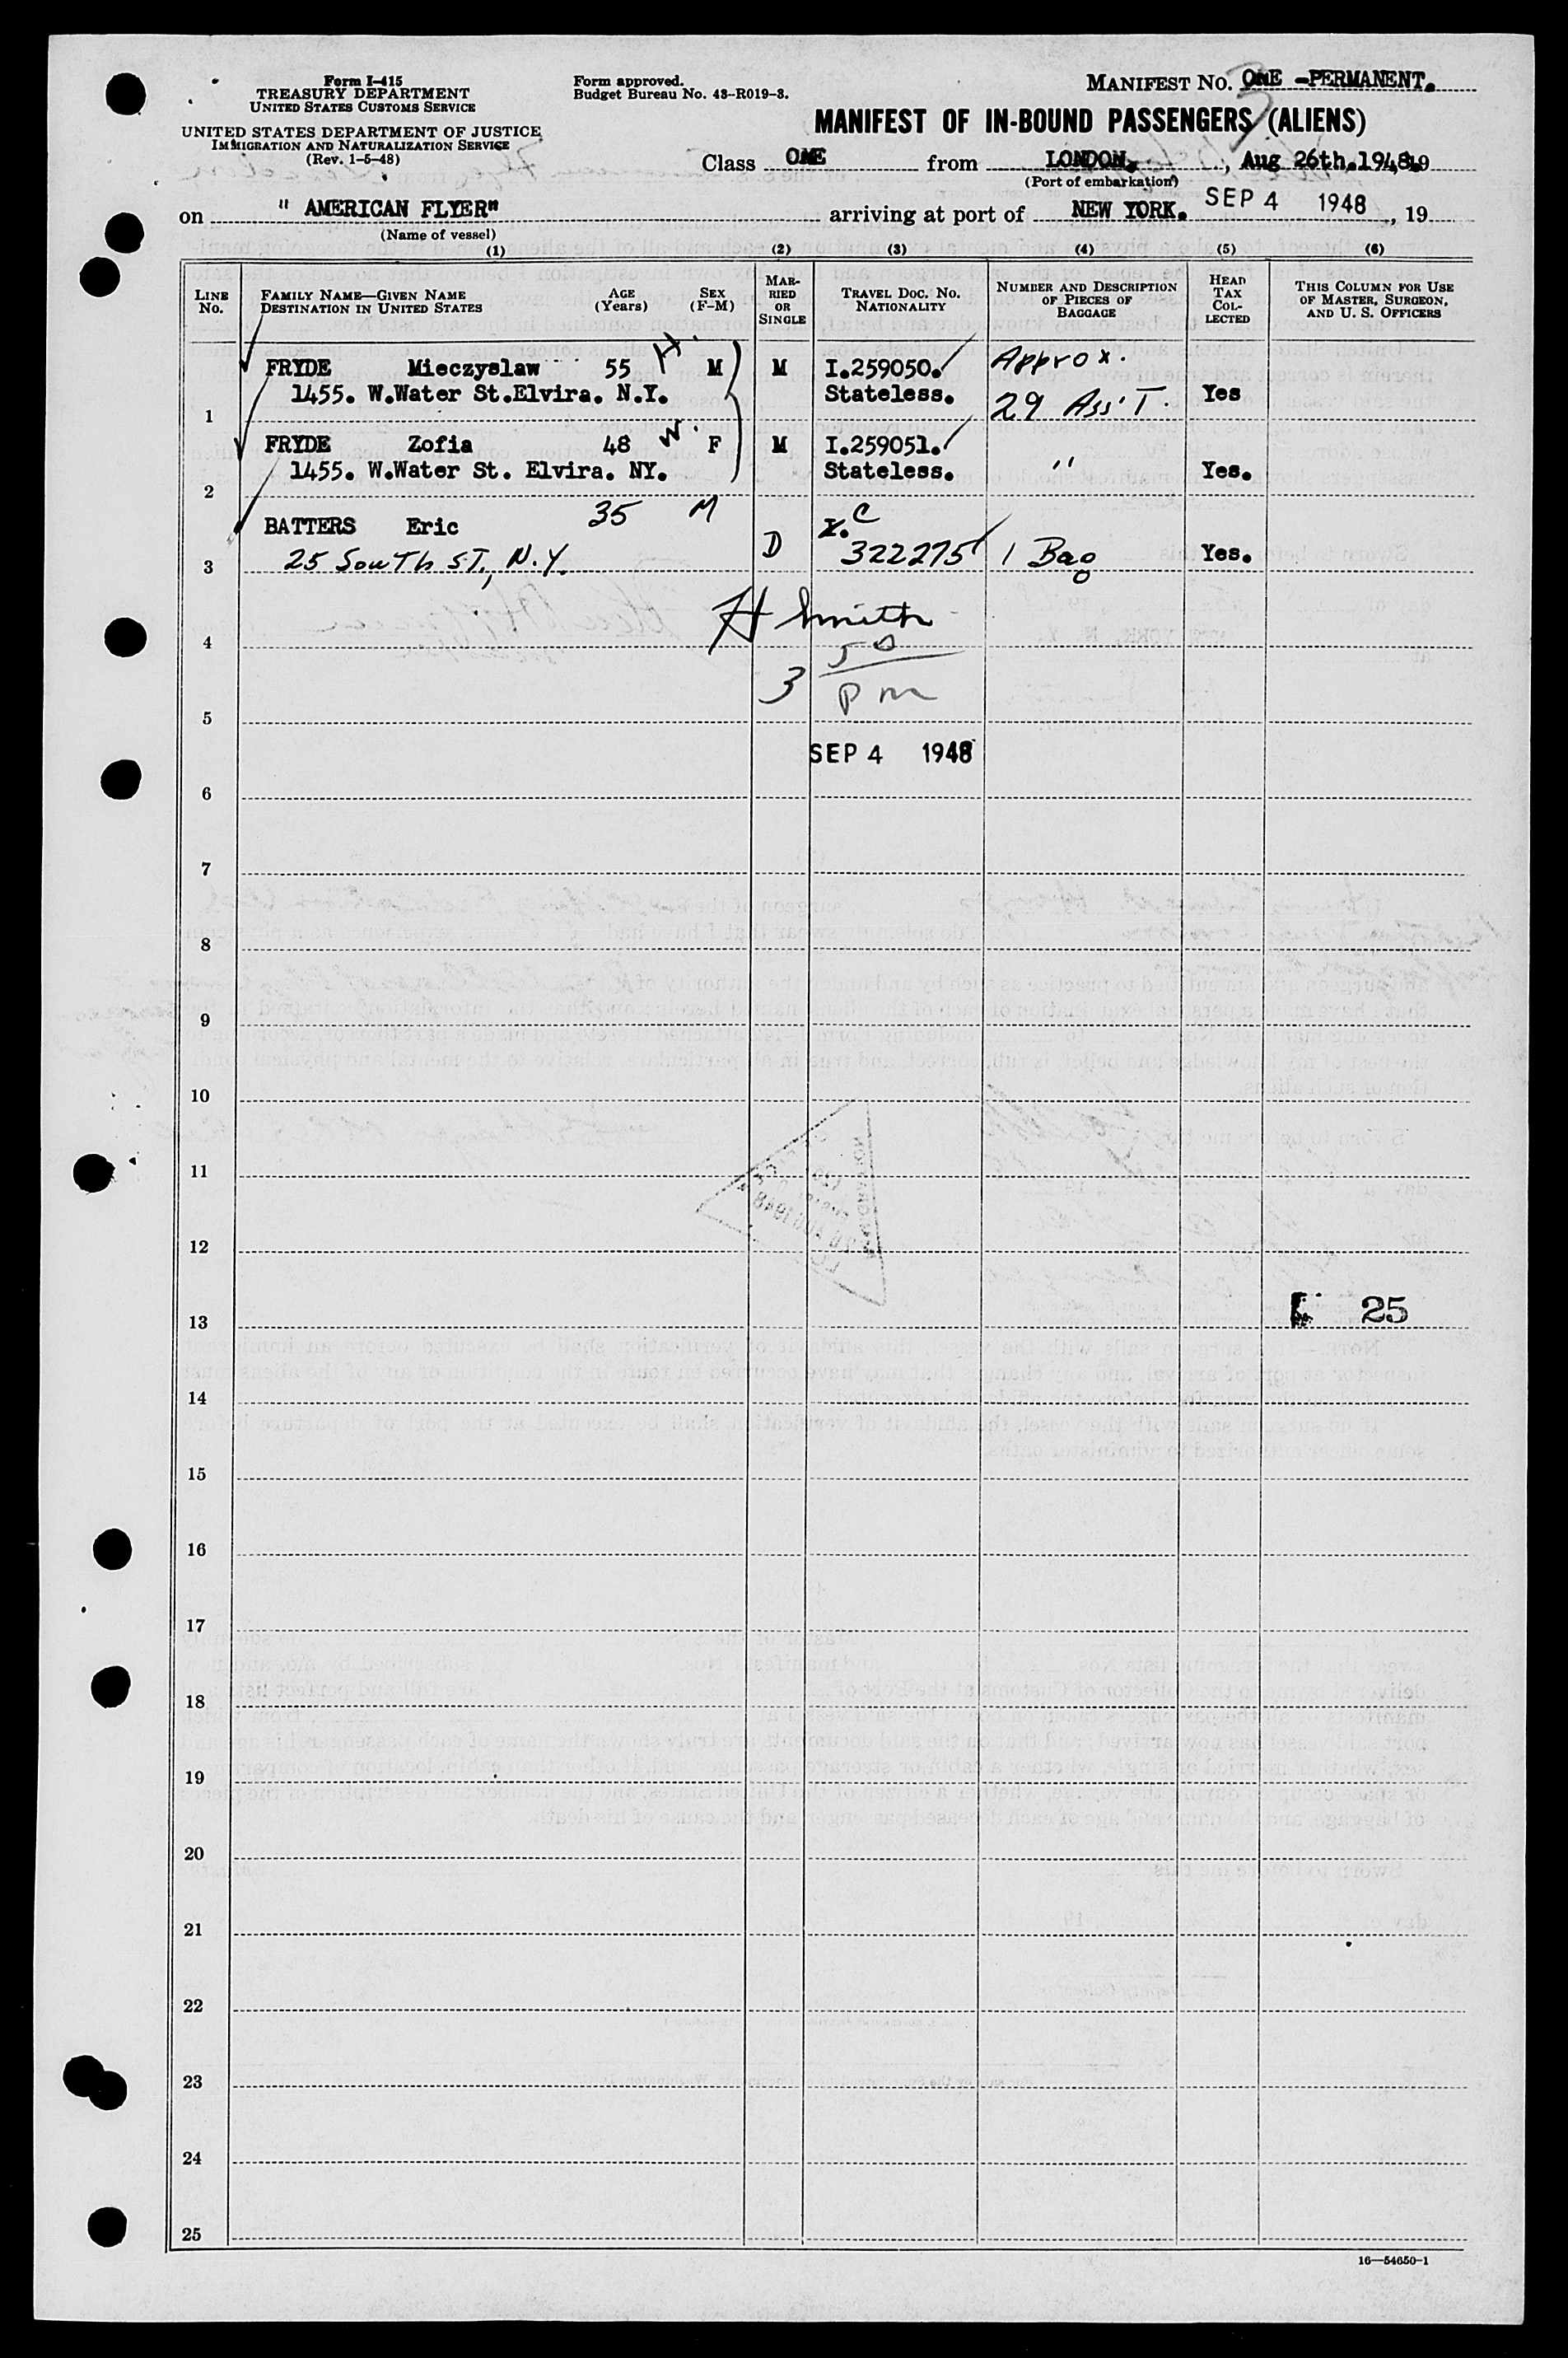 Form I-415
TREASURY DEPARTMENT
UNITED STATES CUSTOMS SERVICE
UNITED STATES DEPARTMENT OF JUSTICE
IMMIGRATION AND NATURALIZATION SERVICE
(Rev. 1-5-48)
Form approved.
Budget Bureau No. 43-R019-3.
MANIFEST No. ONE -PERMANENT.
3
MANIFEST OF IN-BOUND PASSENGERS (ALIENS)
Class ONE from LONDON. , Aug 26th.1948. 19
(Port of embarkation)
on " AMERICAN FLYER" arriving at port of NEW YORK. SEP 4 1948 , 19
(Name of vessel)
(1) (2) (3) (4) (5) (6)
LINE No.
FAMILY NAME—GIVEN NAME
DESTINATION IN UNITED STATES
AGE (Years)
SEX (F-M)
MARRIED OR SINGLE
TRAVEL DOC. NO. NATIONALITY
NUMBER AND DESCRIPTION OF PIECES OF BAGGAGE
HEAD TAX COLLECTED
THIS COLUMN FOR USE OF MASTER, SURGEON, AND U. S. OFFICERS
FRYDE Mieczyslaw 55 H. M M I.259050. Approx.
1 1455. W.Water St.Elvira. N.Y. Stateless. 29 Ass'T. Yes
FRYDE Zofia 48 W. F M I.259051.
2 1455. W.Water St. Elvira. NY. Stateless. " Yes.
BATTERS Eric 35 M I.C
3 25 South ST, N.Y. D 322275 1 Bag Yes.
H Smith
4
3 50 pm
5
SEP 4 1948
6
7
8
9
10
11
12
13 25
14
15
16
17
18
19
20
21
22
23
24
25
16—54650-1